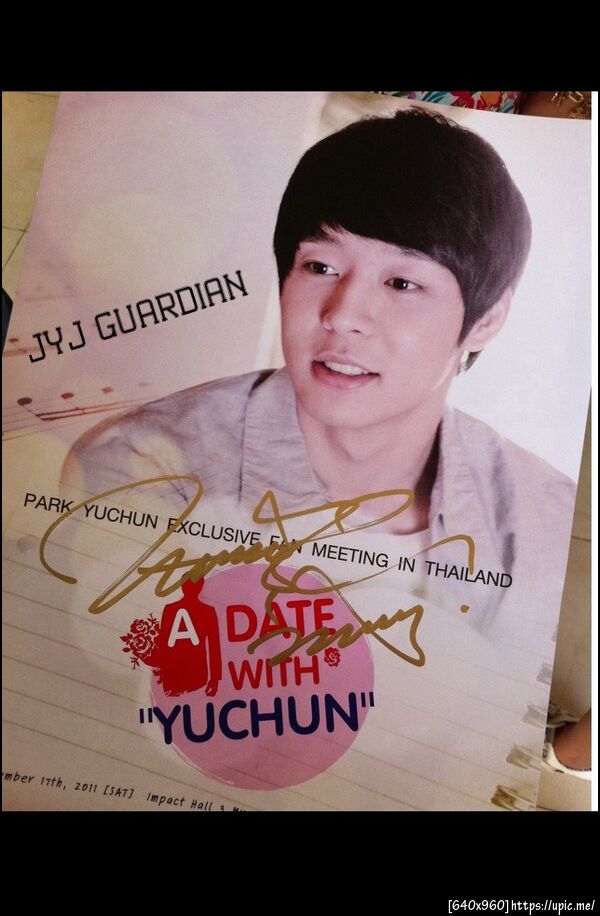 JYJ GUARDIAN
PARK YUCHUN EXCLUSIVE FAN MEETING IN THAILAND
A DATE
WITH
"YUCHUN"
17th, 2011 [SAT] Impact Hall 3
[640x960]https://upic.me/